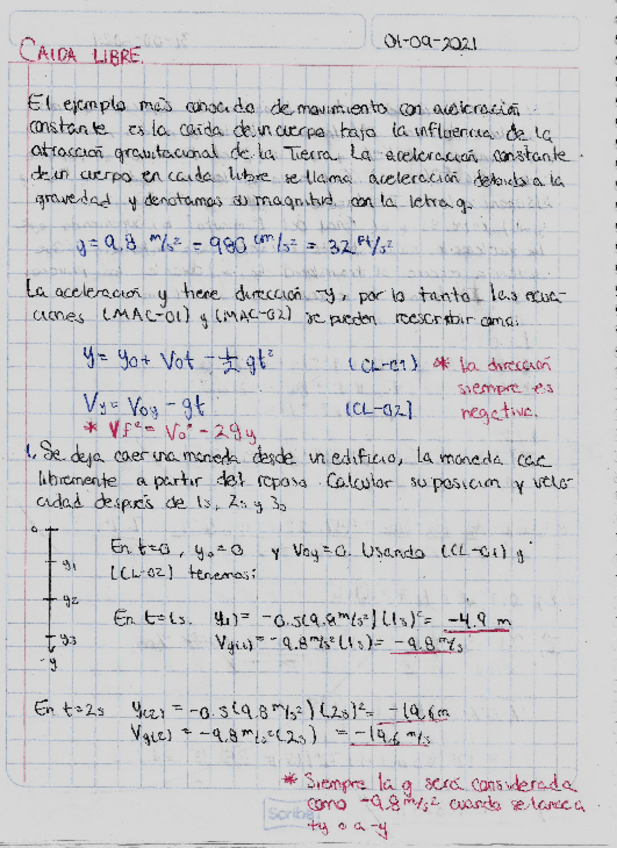 01-09-2021
CAIDA LIBRE.
El ejemplo más conocido de movimiento con aceleración
constante es la caída de un cuerpo bajo la influencia de la
atracción gravitacional de la Tierra. La aceleración constante
de un cuerpo en caída libre se llama aceleración debido a la
gravedad y denotamos su magnitud con la letra g.
g = 9.8 m/s² = 980 cm/s² = 32 ft/s²
La aceleración y tiene dirección -y, por lo tanto las ecua-
ciones (MAC-01) y (MAC-02) se pueden reescribir como:
y = y₀ + V₀t - ½ gt² (CL-01) * la dirección
siempre es
Vy = Voy - gt (CL-02) negativa.
* Vf² = Vo² - 2gy
1. Se deja caer una moneda desde un edificio, la moneda cae
libremente a partir del reposo. Calcular su posición y velo-
cidad después de 1s, 2s y 3s
0
y1
y2
y3
-y
En t=0, y₀=0 y Voy=0. Usando (CL-01) y
(CL-02) tenemos:
En t=1s. y(1) = -0.5(9.8 m/s²)(1s)² = -4.9 m
Vy(1) = -9.8 m/s² (1s) = -9.8 m/s
En t=2s y(2) = -0.5(9.8 m/s²)(2s)² = -19.6m
Vy(2) = -9.8 m/s² (2s) = -19.6 m/s
* Siempre la g será considerada
como -9.8 m/s² cuando se lance a
+y o a -y
Scribe